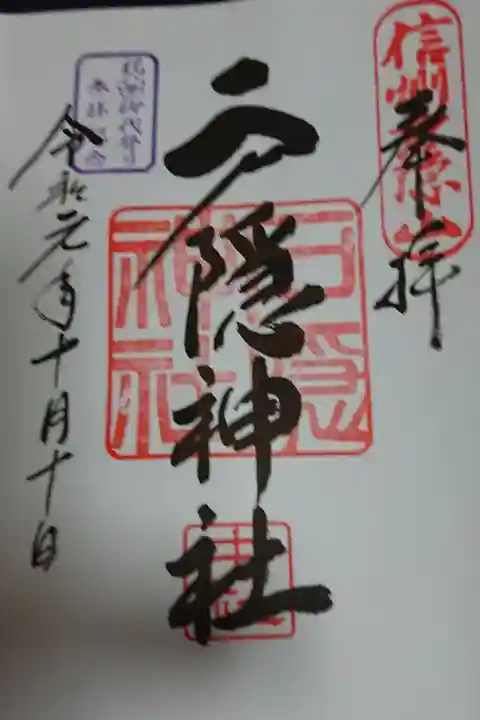 奉拝
信州
戸隠神社
戸隠神社
令和元年十月十日